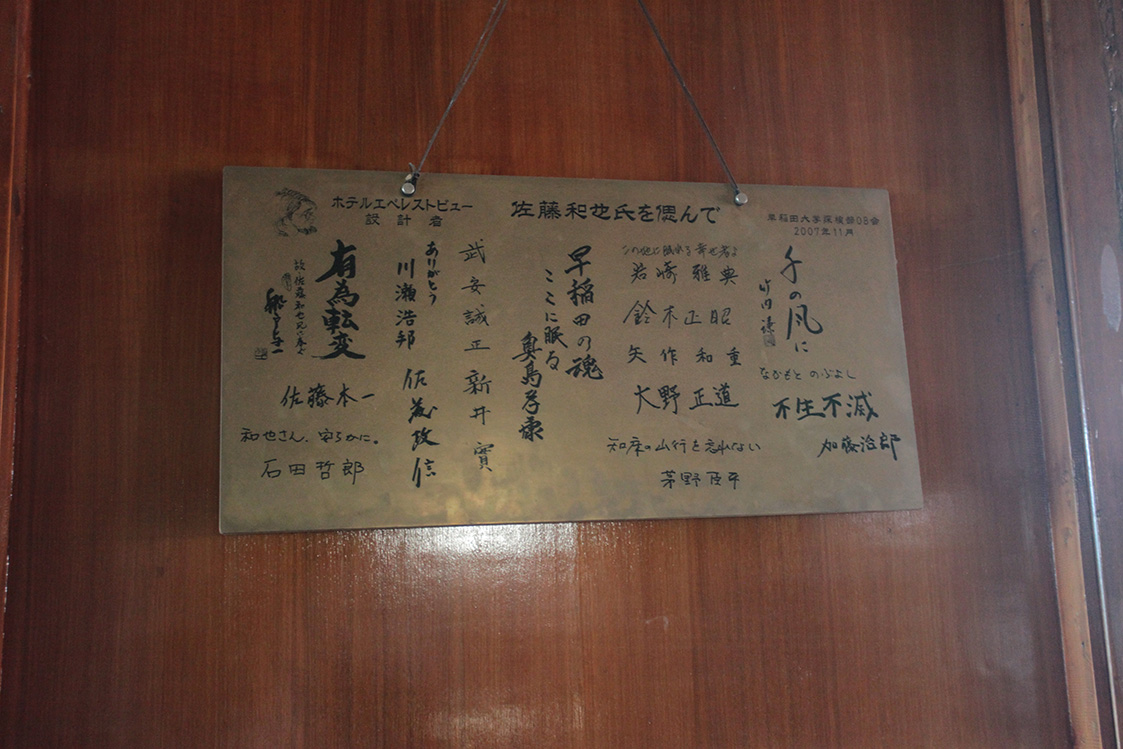 ホテルエベレストビュー
設計者
佐藤和也氏を偲んで
早稲田大学探検部OB会
2007年11月
千の風に
なかもと のぶよし
不生不滅
加藤治郎
この地に眠れる幸せ者よ
岩崎雅典
鈴木正昭
矢作和重
大野正道
知床の山行を忘れない
茅野臣平
早稲田の魂
ここに眠る
奥島孝康
武安誠正
新井實
ありがとう
川瀬浩邦
佐藤政信
有為転変
故佐藤和也兄に奉ぐ
佐藤本一
和也さん、安らかに。
石田哲郎